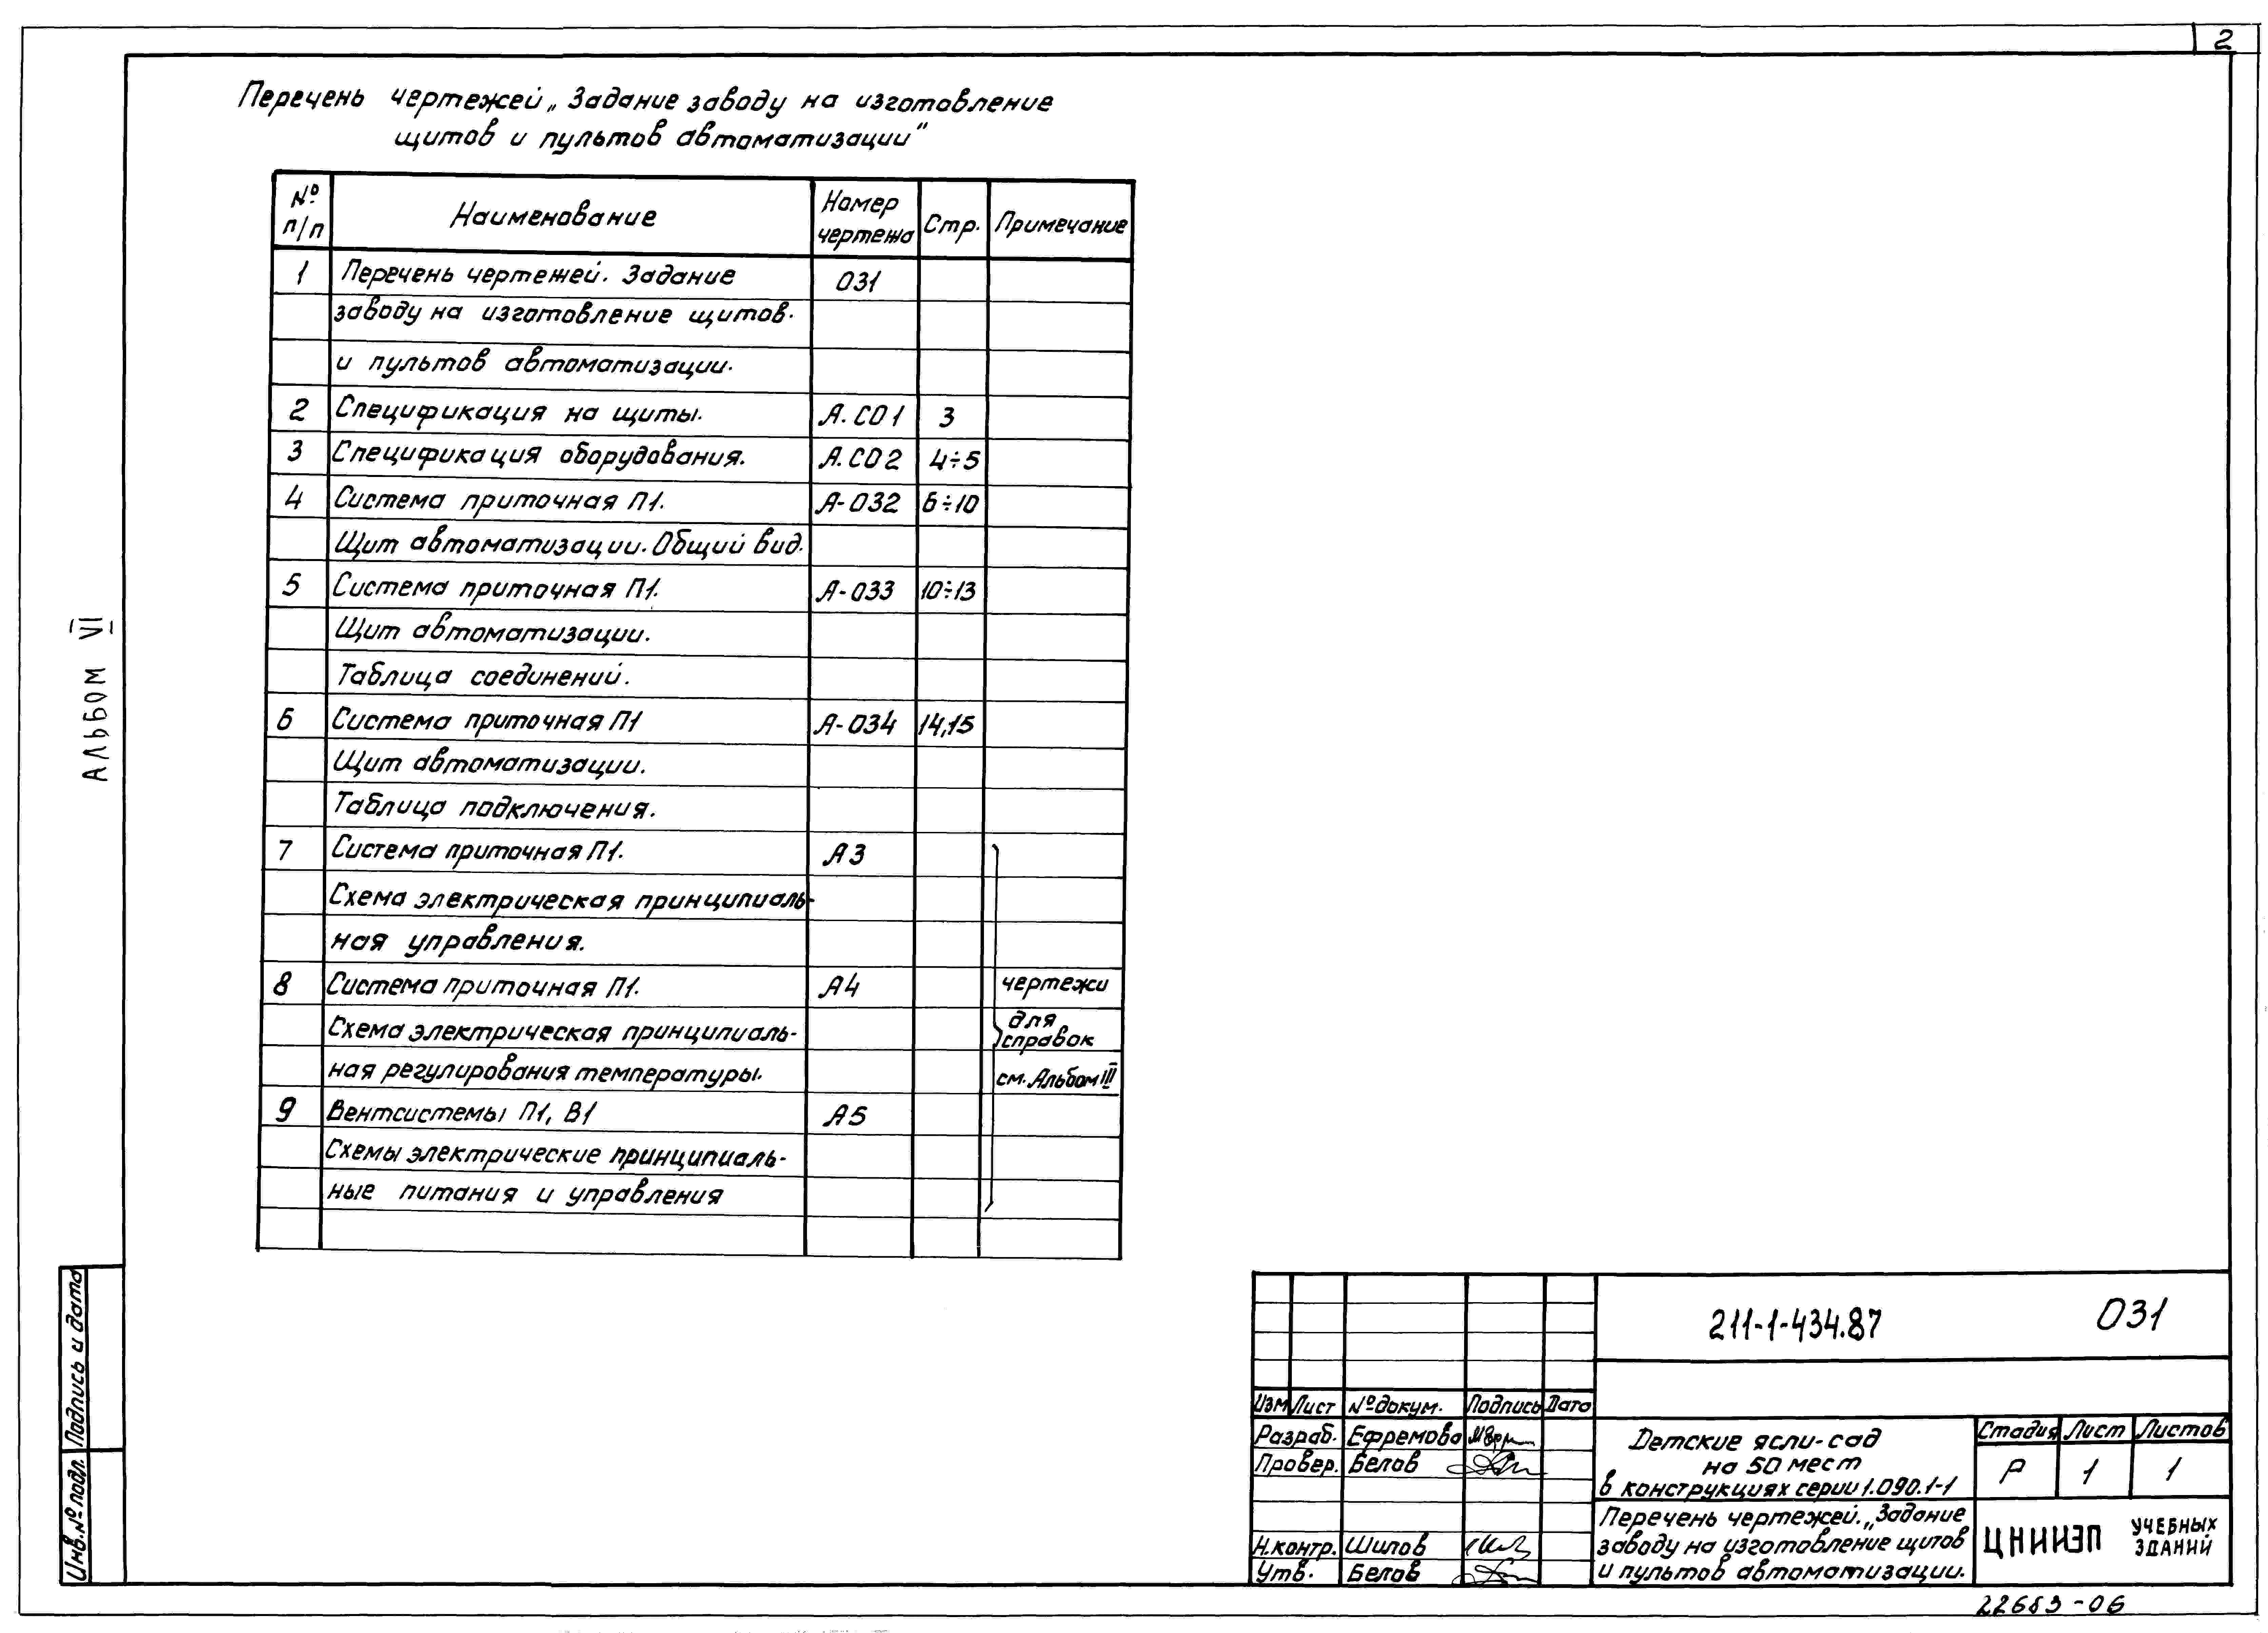 2
Перечень чертежей „Задание заводу на изготовление
щитов и пультов автоматизации"
№ п/п Наименование Номер чертежа Стр. Примечание
1 Перечень чертежей. Задание 031
заводу на изготовление щитов.
и пультов автоматизации.
2 Спецификация на щиты. А.СО1 3
3 Спецификация оборудования. А.СО2 4÷5
4 Система приточная П1. А-032 6÷10
Щит автоматизации. Общий вид.
5 Система приточная П1. А-033 10÷13
Щит автоматизации.
Таблица соединений.
6 Система приточная П1 А-034 14,15
Щит автоматизации.
Таблица подключения.
7 Система приточная П1. А3
Схема электрическая принципиаль-
ная управления.
8 Система приточная П1. А4 чертежи
Схема электрическая принципиаль- для справок
ная регулирования температуры. см. Альбом III
9 Вентсистемы П1, В1 А5
Схемы электрические принципиаль-
ные питания и управления
АЛЬБОМ VI
Подпись и дата
Инв.№ подл.
211-1-434.87 031
Изм Лист № докум. Подпись Дата
Разраб. Ефремова
Провер. Белов
Н.контр. Шилов
Утв. Белов
Детские ясли-сад
на 50 мест
в конструкциях серии 1.090.1-1
Стадия Лист Листов
Р 1 1
Перечень чертежей. „Задание
заводу на изготовление щитов
и пультов автоматизации.
ЦНИИЭП УЧЕБНЫХ ЗДАНИЙ
22683-06